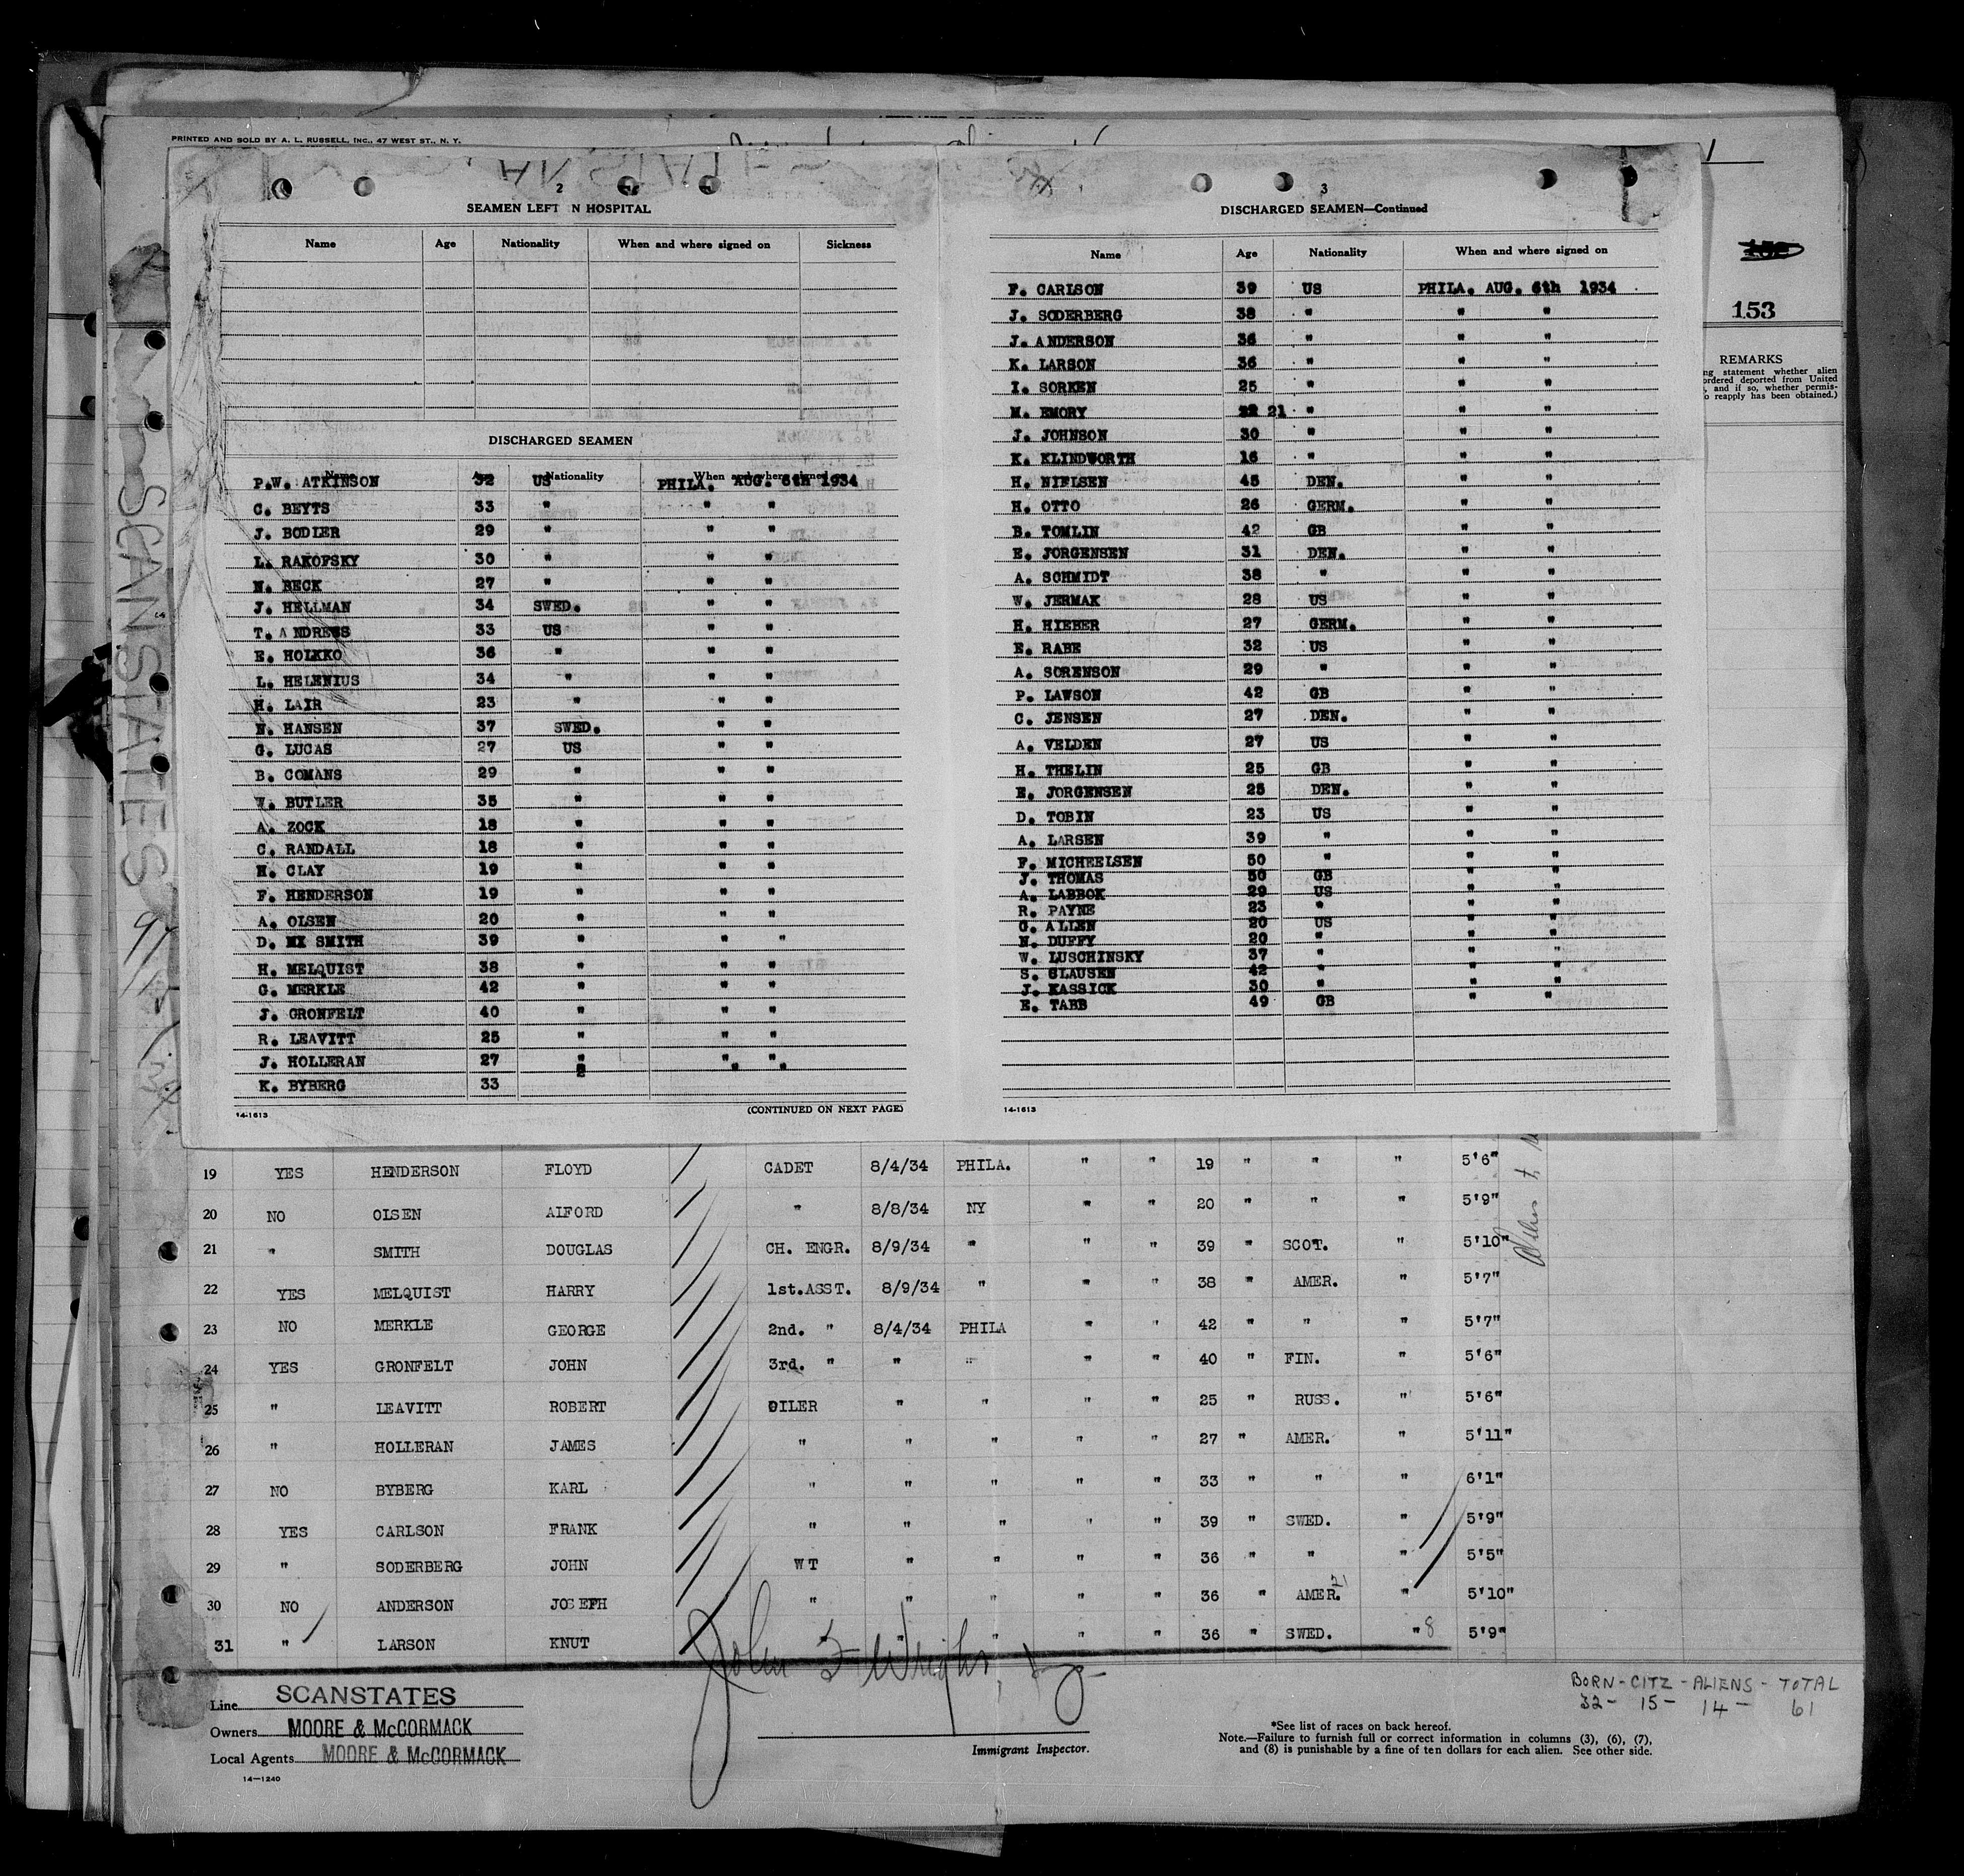 PRINTED AND SOLD BY A. L. RUSSELL, INC., 47 WEST ST., N. Y.
SCANSTATES
2
SEAMEN LEFT N HOSPITAL
Name Age Nationality When and where signed on Sickness
DISCHARGED SEAMEN
Name Age Nationality When and where signed on
P.W. ATKINSON 32 US PHILA. AUG. 6th 1934
C. BEYTS 33 " " "
J. BODLER 29 " " "
L. RAKOFSKY 30 " " "
N. BECK 27 " " "
J. HELLMAN 34 SWED. " "
T. ANDRESS 33 US " "
E. HOLKKO 36 " " "
L. HELENIUS 34 " " "
H. LAIR 23 " " "
N. HANSEN 37 SWED. " "
G. LUCAS 27 US " "
B. COMANS 29 " " "
W. BUTLER 35 " " "
A. ZOCK 18 " " "
C. RANDALL 18 " " "
H. CLAY 19 " " "
F. HENDERSON 19 " " "
A. OLSEN 20 " " "
D. MX SMITH 39 " " "
H. MELQUIST 38 " " "
G. MERKLE 42 " " "
J. GRONFELT 40 " " "
R. LEAVITT 25 " " "
J. HOLLERAN 27 " " "
K. BYBERG 33 " " "
14-1613 (CONTINUED ON NEXT PAGE)
3
DISCHARGED SEAMEN—Continued
Name Age Nationality When and where signed on
F. CARLSON 39 US PHILA. AUG. 6th 1934
J. SODERBERG 38 " " "
J. ANDERSON 36 " " "
K. LARSON 36 " " "
I. SORKEN 25 " " "
M. EMORY 21 " " "
J. JOHNSON 30 " " "
K. KLINDWORTH 16 " " "
H. NIELSEN 45 DEN. " "
H. OTTO 26 GERM. " "
B. TOMLIN 42 GB " "
E. JORGENSEN 31 DEN. " "
A. SCHMIDT 38 " " "
W. JERMAK 28 US " "
H. HIEBER 27 GERM. " "
E. RABE 32 US " "
A. SORENSON 29 " " "
P. LAWSON 42 GB " "
C. JENSEN 27 DEN. " "
A. VELDEN 27 US " "
H. THELIN 25 GB " "
E. JORGENSEN 25 DEN. " "
D. TOBIN 23 US " "
A. LARSEN 39 " " "
F. MICHEELSEN 50 " " "
J. THOMAS 50 GB " "
A. LABBOK 29 US " "
R. PAYNE 23 " " "
G. ALLEN 20 US " "
N. DUFFY 20 " " "
W. LUSCHINSKY 37 " " "
S. SLAUSEN 42 " " "
J. KASSICK 30 " " "
E. TABB 49 GB " "
14-1613
153
REMARKS
ng statement whether alien
ordered deported from United
, and if so, whether permis-
o reapply has been obtained.)
19 YES HENDERSON FLOYD CADET 8/4/34 PHILA. " " 19 " " " 5'6"
20 NO OLSEN AIFORD " 8/8/34 NY " " 20 " " " 5'9"
21 " SMITH DOUGLAS CH. ENGR. 8/9/34 " " " 39 " SCOT. " 5'10"
22 YES MELQUIST HARRY 1st.ASST. 8/9/34 " " " 38 " AMER. " 5'7"
23 NO MERKLE GEORGE 2nd. " 8/4/34 PHILA " " 42 " " " 5'7"
24 YES GRONFELT JOHN 3rd. " " " " " 40 " FIN. " 5'6"
25 " LEAVITT ROBERT OILER " " " " 25 " RUSS. " 5'6"
26 " HOLLERAN JAMES " " " " " 27 " AMER. " 5'11"
27 NO BYBERG KARL " " " " " 33 " " " 6'1"
28 YES CARLSON FRANK " " " " " 39 " SWED. " 5'9"
29 " SODERBERG JOHN WT " " " " 36 " " " 5'5"
30 NO ANDERSON JOSEPH " " " " " 36 " AMER. 21 " 5'10"
31 " LARSON KNUT " " " " 36 " SWED. " 8 5'9"
John F Wright
Line SCANSTATES
Owners MOORE & McCORMACK
Local Agents MOORE & McCORMACK
14—1240
Immigrant Inspector.
BORN - CITZ - ALIENS - TOTAL
32 - 15 - 14 - 61
*See list of races on back hereof.
Note.—Failure to furnish full or correct information in columns (3), (6), (7),
and (8) is punishable by a fine of ten dollars for each alien. See other side.